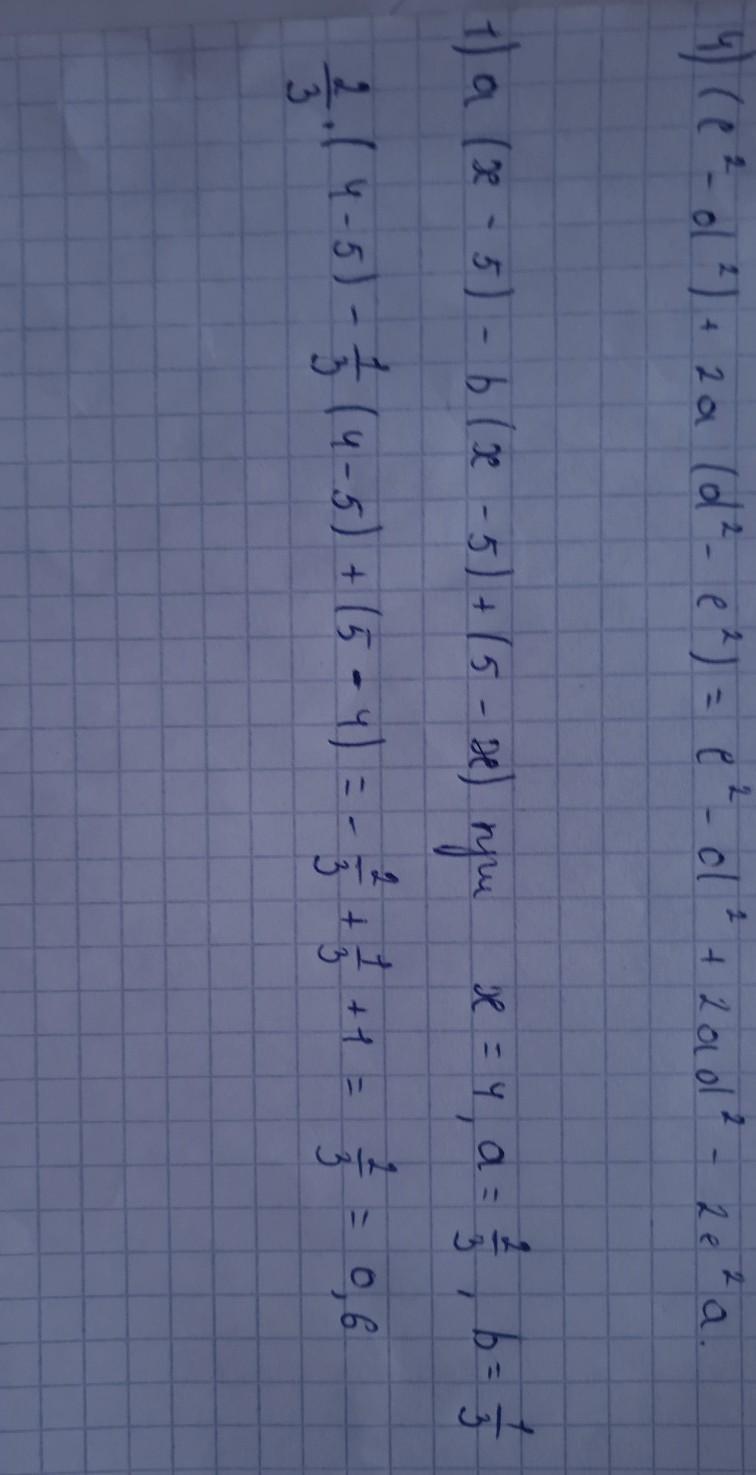 4) (e² - d²) + 2a (d² - e²) = e² - d² + 2ad² - 2e²a.
1) a (x - 5) - b (x - 5) + (5 - x) при x = 4, a = 2/3, b = 1/3
2/3 · (4 - 5) - 1/3 (4 - 5) + (5 - 4) = - 2/3 + 1/3 + 1 = 2/3 = 0,6